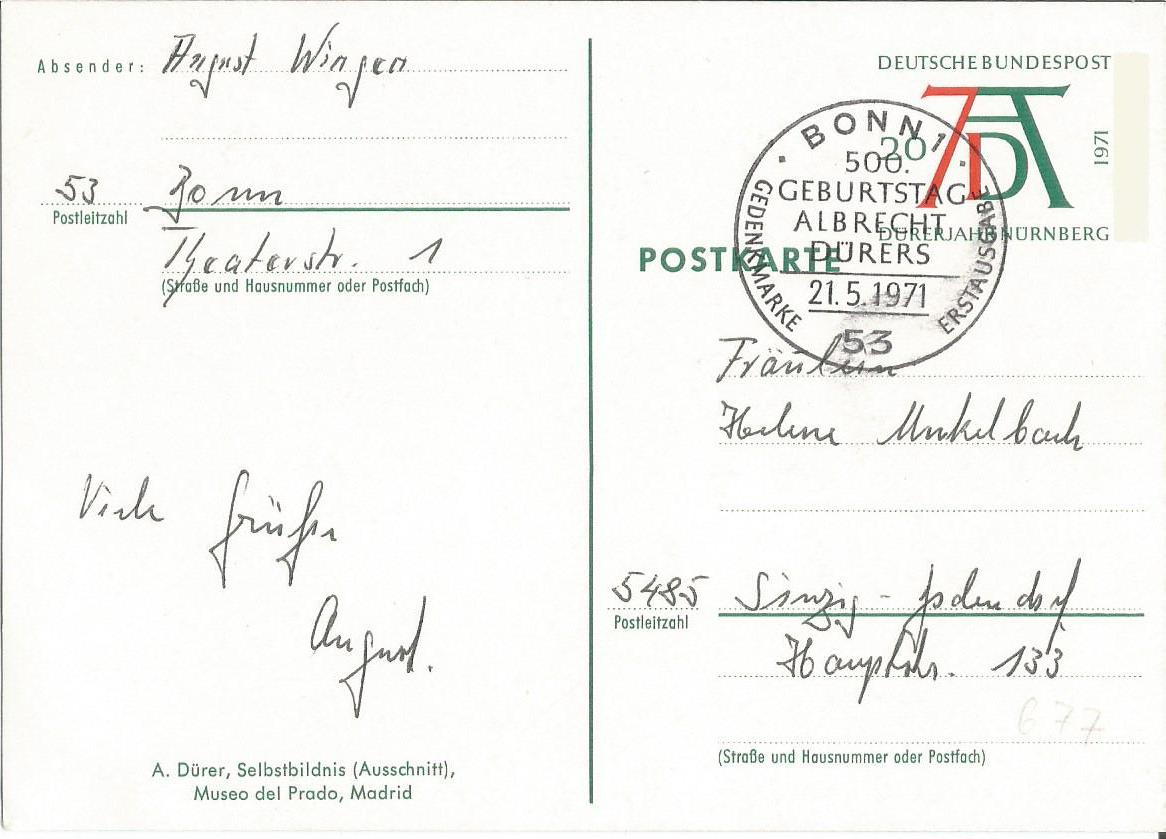 Absender: August Wingen
53 Bonn
Postleitzahl
Theaterstr. 1
(Straße und Hausnummer oder Postfach)
Viele Grüße
August.
A. Dürer, Selbstbildnis (Ausschnitt),
Museo del Prado, Madrid
DEUTSCHE BUNDESPOST
1971
20
DÜRERJAHR NÜRNBERG
BONN 1
500.
GEBURTSTAG
ALBRECHT
DÜRERS
21.5.1971
53
GEDENKMARKE
ERSTAUSGABE
POSTKARTE
Fräulein
Helene Unkelbach
5485 Sinzig -
Postleitzahl
Hauptstr. 133
677
(Straße und Hausnummer oder Postfach)